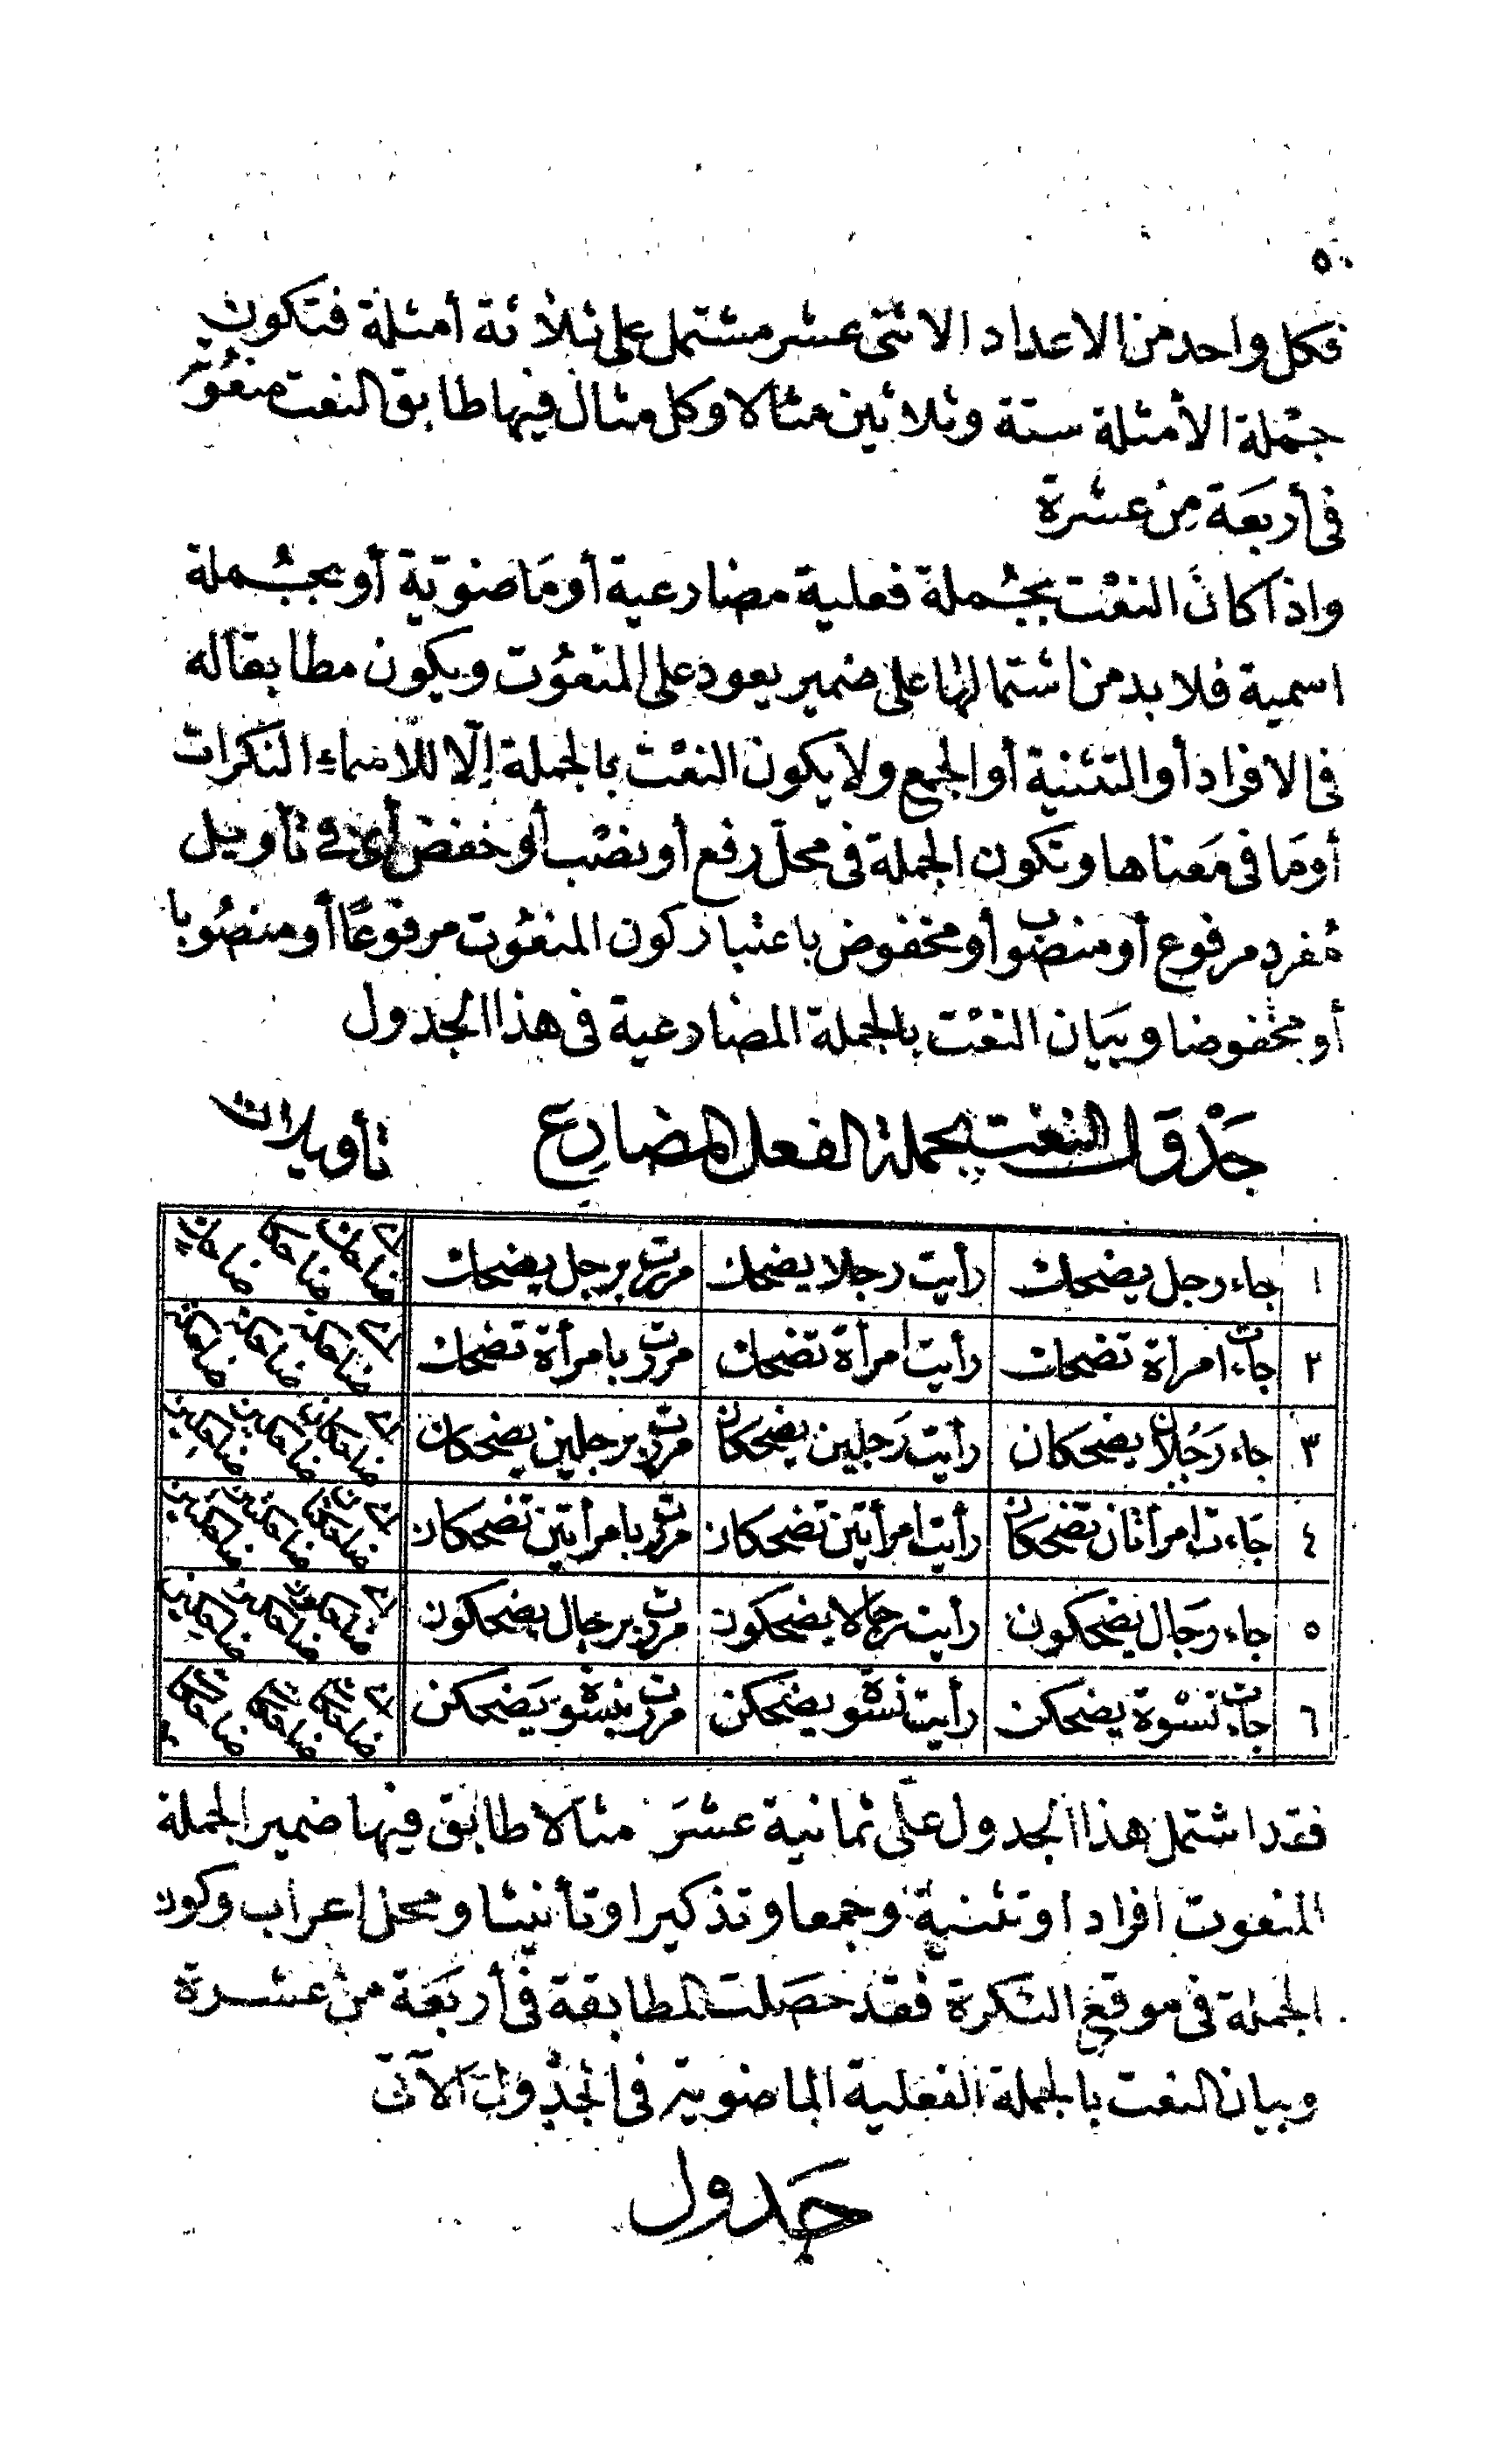 ٥٠
فكل واحد من الاعداد الاثنى عشر مشتمل على ثلاثة أمثلة فتكون
جملة الأمثلة ستة وثلاثين مثالا وكل مثال فيها طابق النعت منعوته
فى أربعة من عشرة
واذا كان النعت بجملة فعلية مضارعية أو ماضوية أو بجملة
اسمية فلا بد من اشتمالها على ضمير يعود على المنعوت ويكون مطابقا له
فى الافراد أو التثنية أو الجمع ولا يكون النعت بالجملة إلّا للاسماء النكرات
أو ما فى معناها وتكون الجملة فى محلّ رفع أو نصب أو خفض أى فى تأويل
مفرد مرفوع أو منصوب أو مخفوض باعتبار كون المنعوت مرفوعًا أو منصوبا
أو مخفوضا وبيان النعت بالجملة المضارعية فى هذا الجدول
جدول النعت بجملة الفعل المضارع تأويلات
١ جاء رجل يضحك رأيت رجلا يضحك مررت برجل يضحك أى ضاحك ضاحكا ضاحك
٢ جاءت امرأة تضحك رأيت امرأة تضحك مررت بامرأة تضحك أى ضاحكة ضاحكة ضاحكة
٣ جاء رجلان يضحكان رأيت رجلين يضحكان مررت برجلين يضحكان أى ضاحكان ضاحكين ضاحكين
٤ جاءت امرأتان تضحكان رأيت امرأتين تضحكان مررت بامرأتين تضحكان أى ضاحكتان ضاحكتين ضاحكتين
٥ جاء رجال يضحكون رأيت رجالا يضحكون مررت برجال يضحكون أى ضاحكون ضاحكين ضاحكين
٦ جاءت نسوة يضحكن رأيت نسوة يضحكن مررت بنسوة يضحكن أى ضاحكات ضاحكات ضاحكات
فقد اشتمل هذا الجدول على ثمانية عشر مثالا طابق فيها ضمير الجملة
المنعوت افرادا وتثنية وجمعا وتذكيرا وتأنيثا ومحل اعراب وكون
الجملة فى موقع النكرة فقد حصلت المطابقة فى أربعة من عشرة
وبيان النعت بالجملة الفعلية الماضوية فى الجدول الآتى
جدول